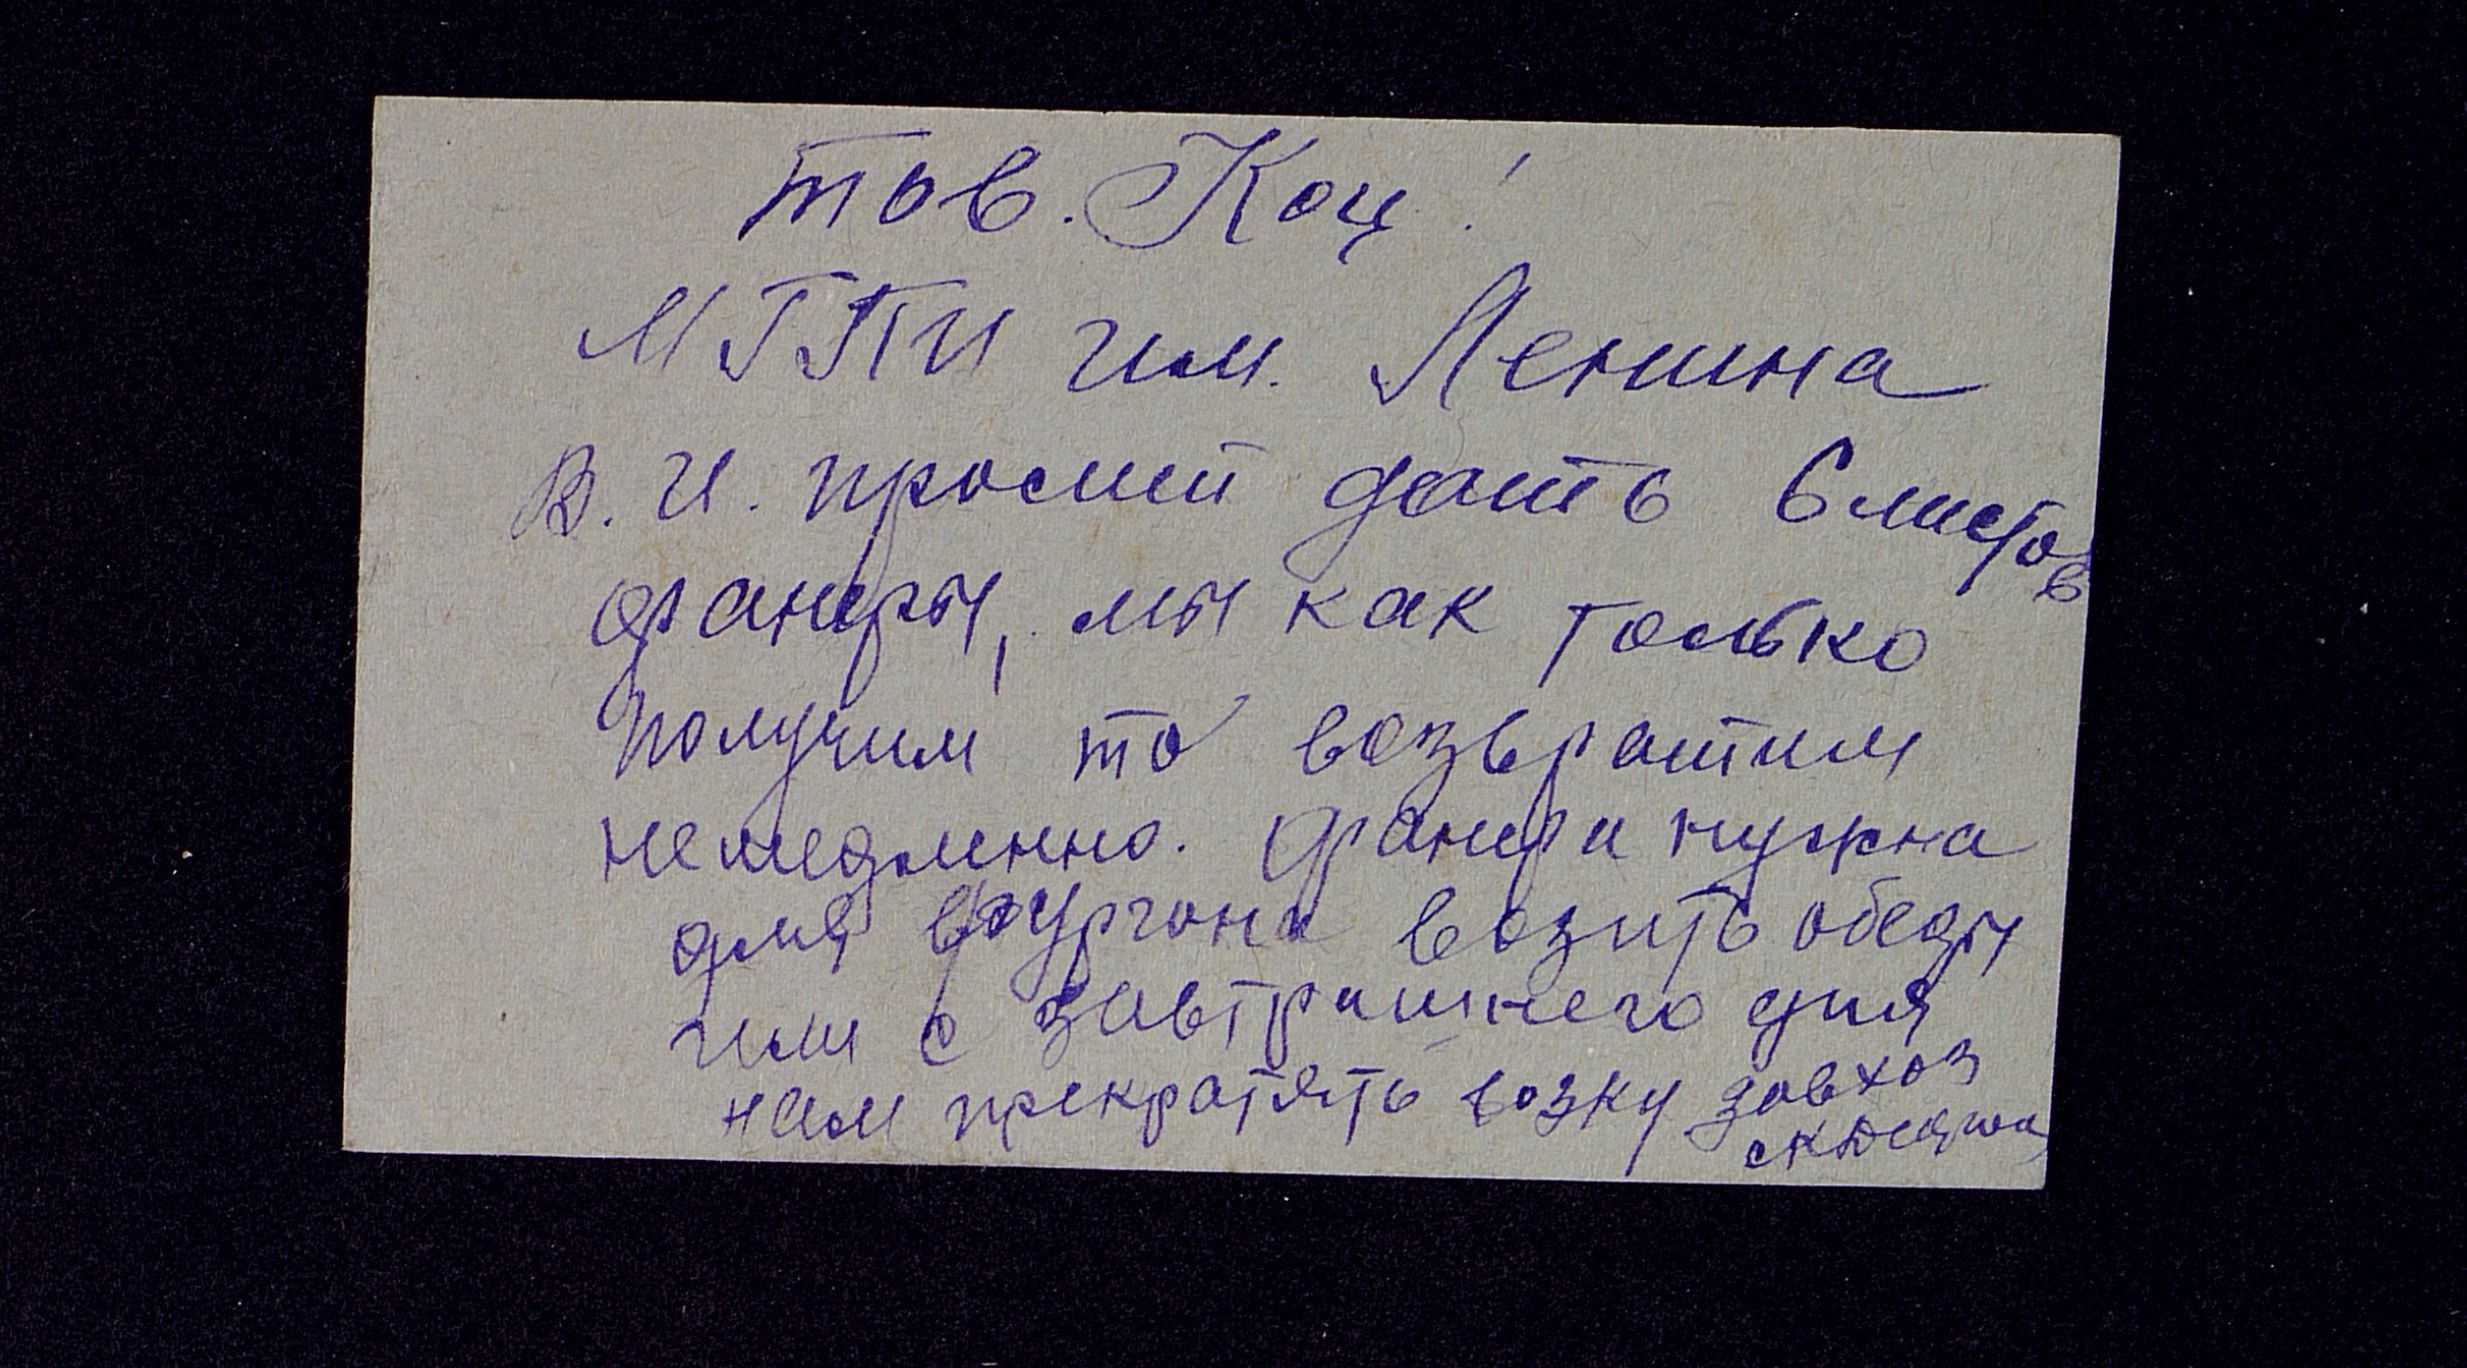 тов. Кац!
МГПИ им. Ленина
В. И. просит дать 6 листов
фанеры, мы как только
получим то возвратим
немедленно. Фанера нужна
для фургона возить обеды
или с завтрашнего дня
нам прекратять возку завхоз